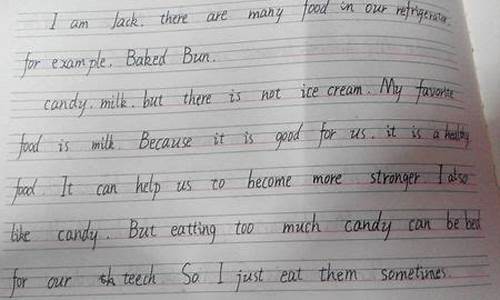 I am Jack. there are many food in our refrigerator.
for example. Baked Bun.
candy. milk. but there is not ice cream. My favorite
food is milk Because it is good for us. it is a healthy
food. It can help us to become more stronger I also
like candy. But eatting too much candy can be bed
for our teech So I just eat them sometimes.